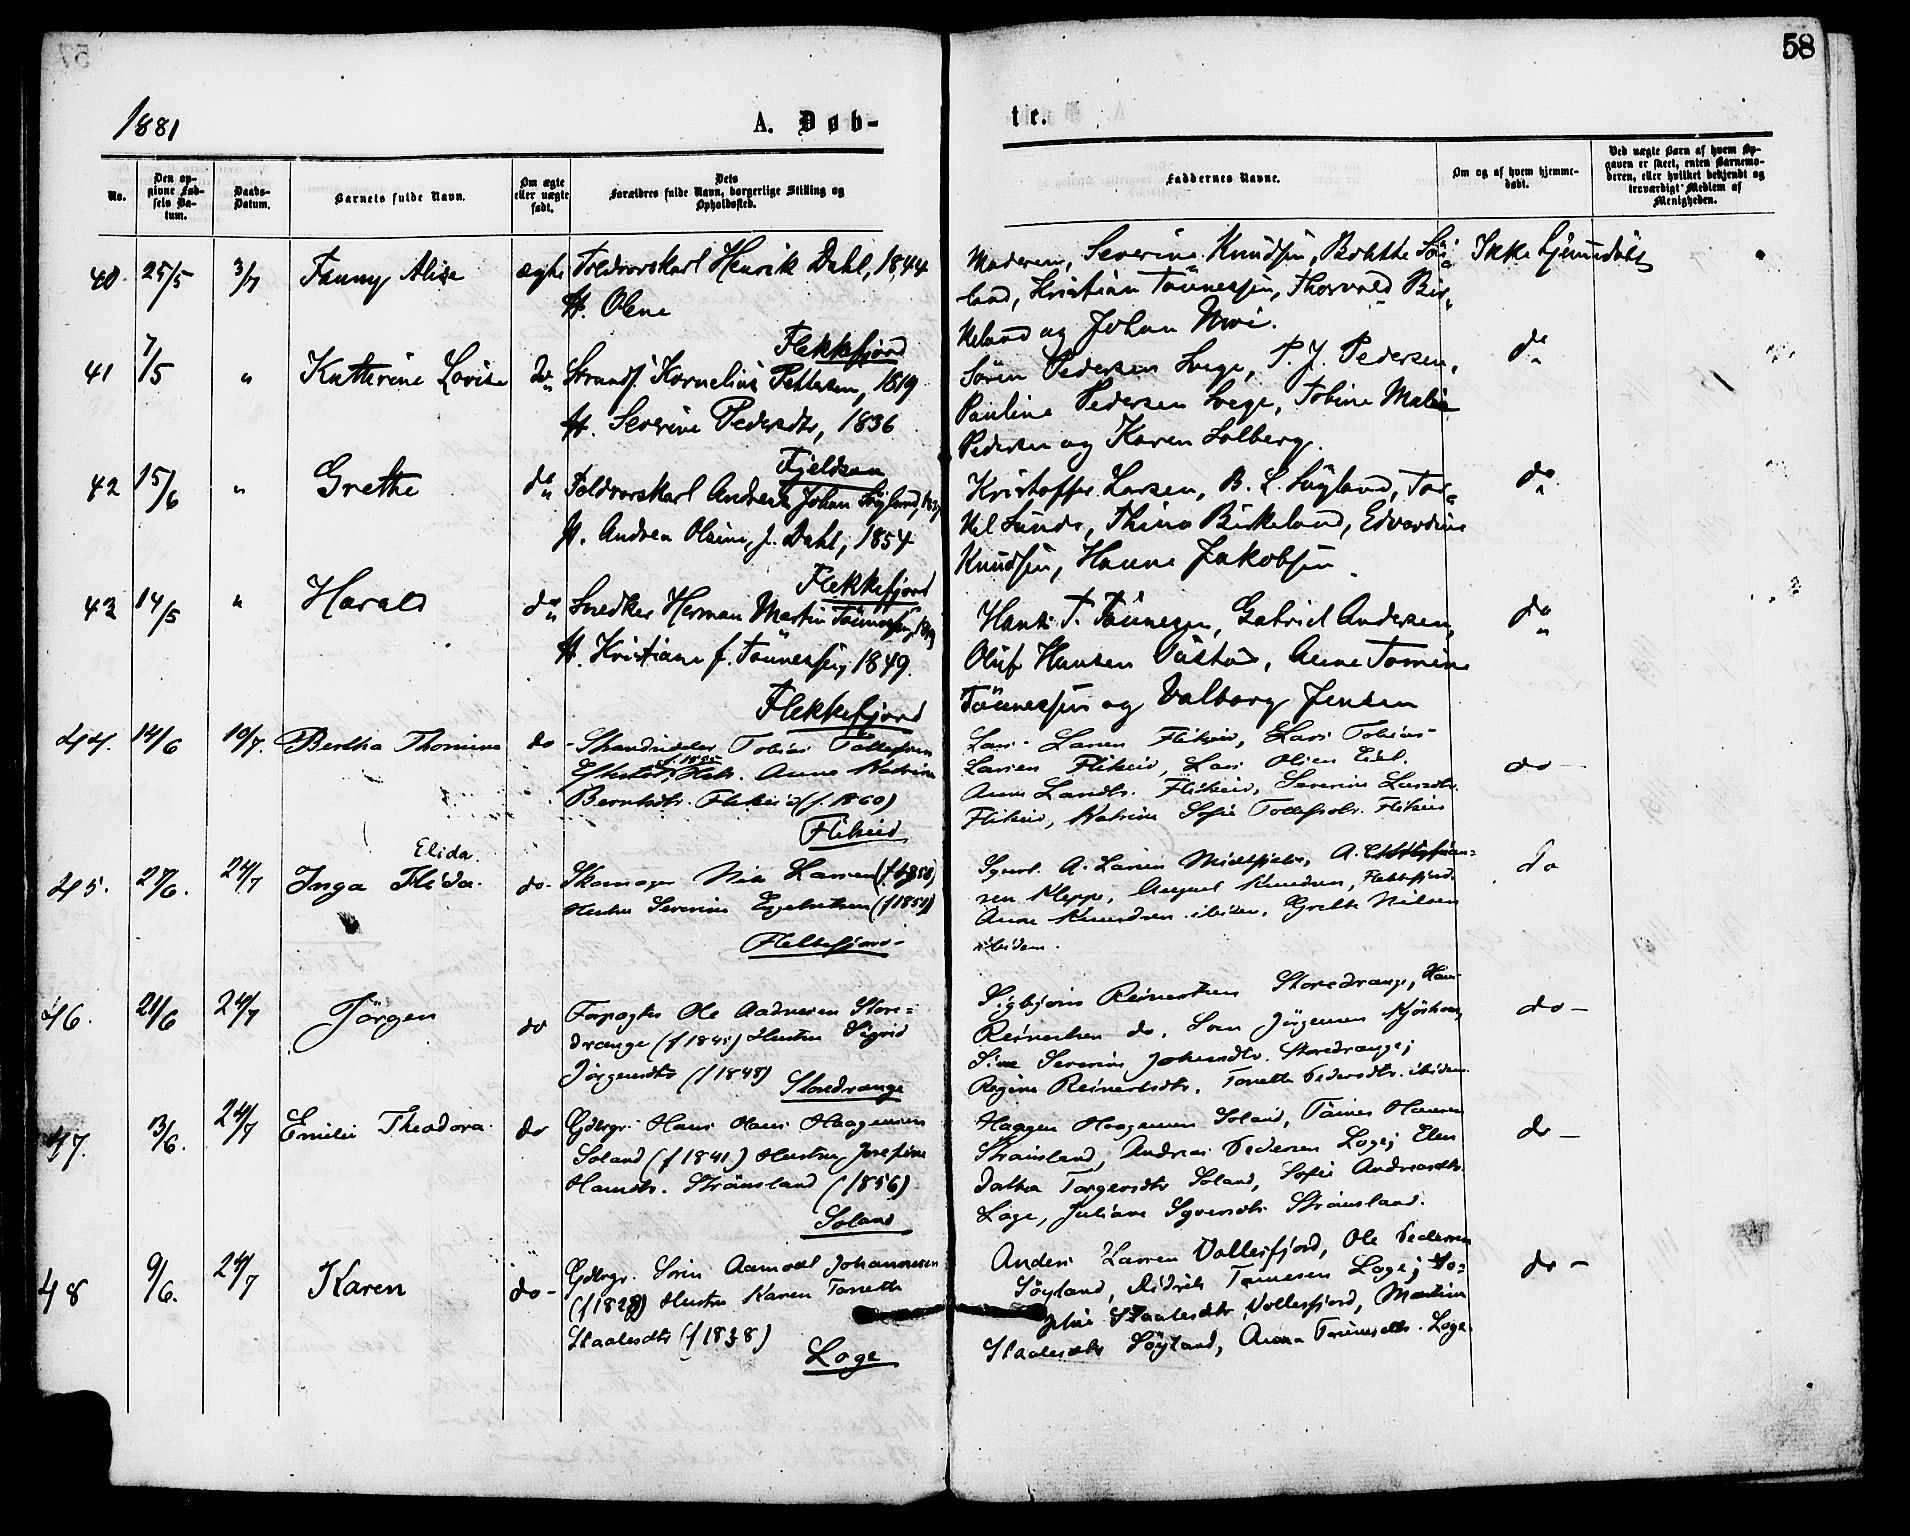 58
1881
A. Døb-
te.
No.
Den op-
givne Fød-
sels Da-
tum.
Daabs-
Datum.
Barnets fulde Navn.
Om ægte
eller uægte
født.
Dets
Forældres fulde Navn, borgerlige Stilling og
Opholdssted.
Faddernes Navne.
Om og af hvem hjemme-
døbt.
Ved uægte Barn af hvem Op-
gaven er skeet, enten Barnemo-
deren, eller hvilket bekjendt og
troværdigt Medlem af
Menigheden.
40. 25/5 3/7 Fanny Alise ægte Toldvorskarl Henrik Dahl, 1844
H. Olene
Flekkefjord
Moderen, Severine Knudsen, Berthe
land, Kristian Tönnessen, Thorvald Bir-
keland og Johan Moi.
Ikke hjemmedøbt
41 7/5 " Kathrine Lovise do Strands. Kornelius Pettersen, 1819
H. Severine Pedersdtr, 1836
Fjeldsaa
Sören Pedersen Svege, P. J. Pedersen,
Pauline Pedersen Svege, Tobine Malie
Pedersen og Karen Solberg.
do
42 15/6 " Grethe do Toldvorskarl Andreas Johan Söyland,
H. Andrea Olsine, f. Dahl, 1854
Flekkefjord
Kristoffer Larsen, B. L. Söyland, Tor-
kel Sunde, Thina Birkeland, Edvardine
Knudsen, Hanne Jakobsen
do
43 14/5 " Harald do Snedker Herman Martin Tönnessen,
H. Kristiane f. Tönnessen, 1849.
Flekkefjord
Hans T. Tönnesen, Gabriel Andersen,
Oluf Hansen, Anne Tomine
Tönnessen og Valborg Jensen
do
44. 14/6 10/7. Bertha Thomine do - Strandsidder Tobias Tollefsen
Anne Katrine
Berntsdtr. Flikeid (f. 1860)
Flikeid
Lars Larsen Flikeid, Lars Tobias-
Larsen Flikeid, Lars Olsen
Anne Larsdtr. Flikeid, Severine Larsdtr.
Flikeid, Katrine Sofie Tollefsdtr. Flikeid
do -
Elida.
45. 27/6. 24/7 Inga do - Skomager Nils Larsen
Hustru Severine (f 1851)
Flekkefjord -
A. Larsen Midtfjeld, A.
sen Kleppe, August Knudsen, Flekkefjord.
Anne Knudsen ibidem, Grethe Nielsen
ibidem.
do
46. 21/6 24/7 Jörgen do Forpagter Ole Aadnesen Store-
drange (f 1845) Hustru Sigrid
Jörgensdtr (f 1848)
Storedrange
Sigbjörn Reinertsen Storedrange, Hans
Reinertsen do, Sven Jörgensen
Sine Severine Johansdtr. Storedrange;
Regine Reinertsdtr, Tonette Pedersdtr. ibidem.
do -
47. 13/6. 24/7 Emilie Theodora. do Gdbrgr. Hans Hans Haagensen
Soland (f 1841) Hustru Josefine
Hansdtr. Strömsland (1856)
Soland
Haagen Haagensen Soland, Tönnes Hansen
Strömsland, Andreas Pedersen Loge; Elen
Daltea Torgersdtr Soland, Sofie Andreasdtr.
Loge, Juliane Syversdtr Strömsland.
do -
48 9/6. 24/7 Karen do - Gdbrgr. Sörin Aamodt Johannesen
Hustru Karen Tonette
Staalesdtr (f 1838)
Loge
Anders Larsen Vollesfjord, Ole Pedersen
Söyland, Didrik Tönnesen Loge; So-
phie Staalesdtr Vollesfjord, Martine
Staalesdtr Söyland, Anna Tönnesdtr. Loge.
do -